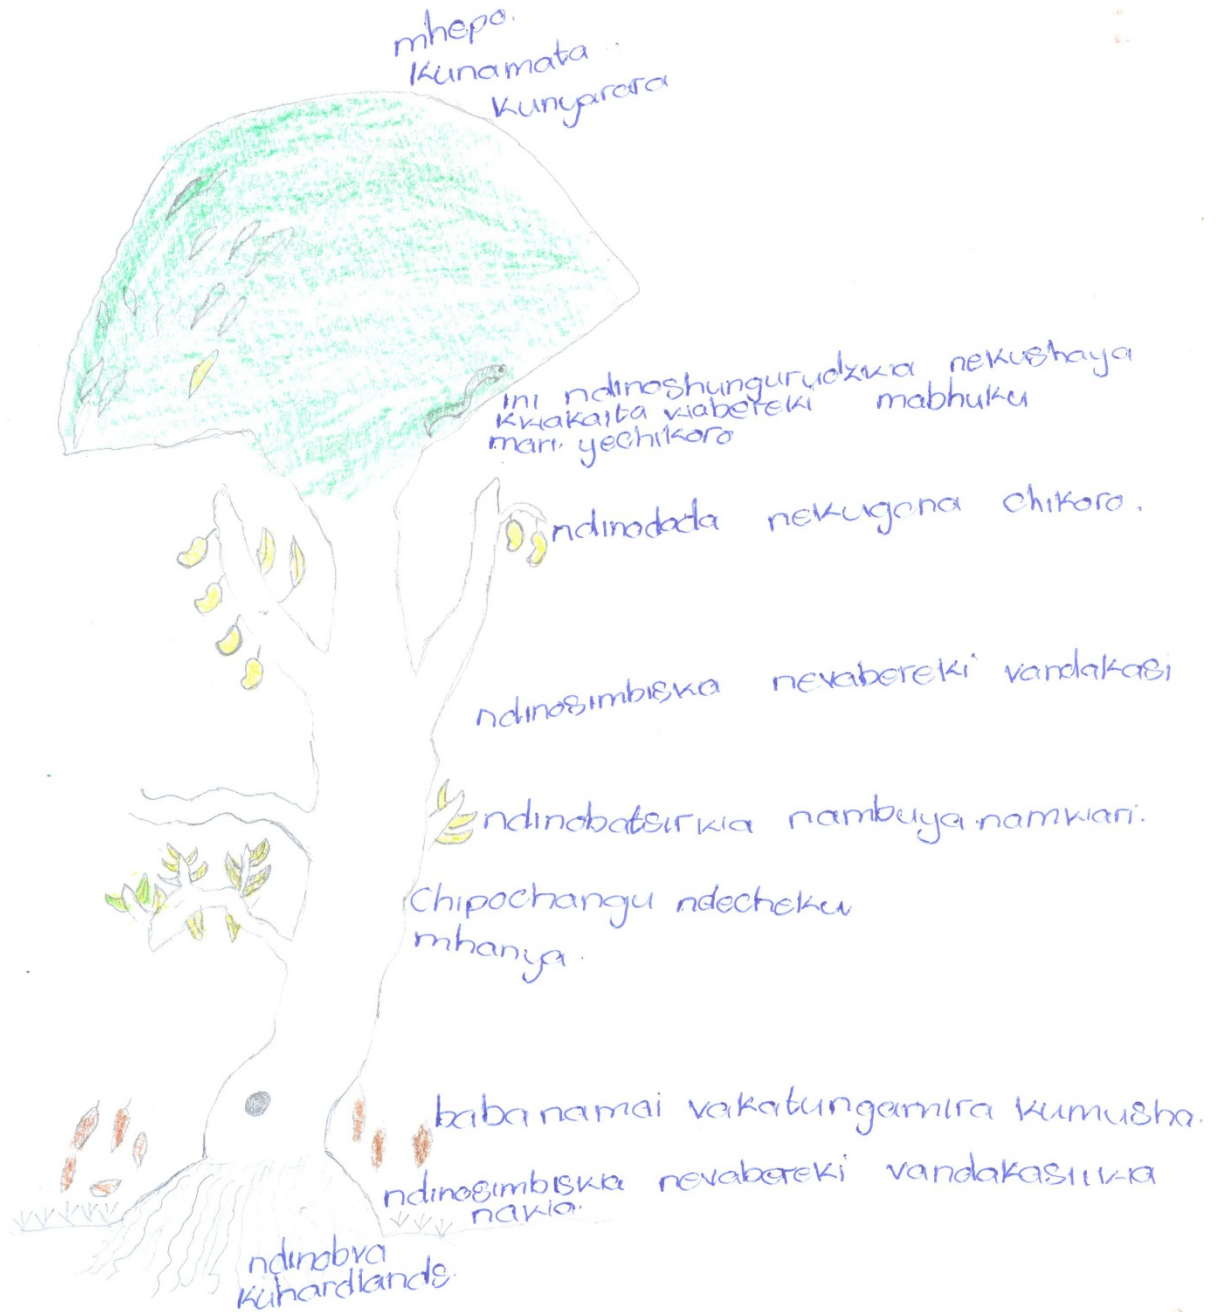 mhepo.
Kunamata
Kunyarara
ini ndinoshungurudzwa nekushaya
kwakaita vabereki mabhuku
mari yechikoro
ndinodada nekugona chikoro.
ndinosimbiswa nevabereki vandakasi
ndinobatsirwa nambuya namwari.
Chipochangu ndecheku
mhanya.
baba namai vakatungamira kumusha.
ndinosimbiswa nevabereki vandakasiiwa
navo.
ndinobva
kuhardlands.